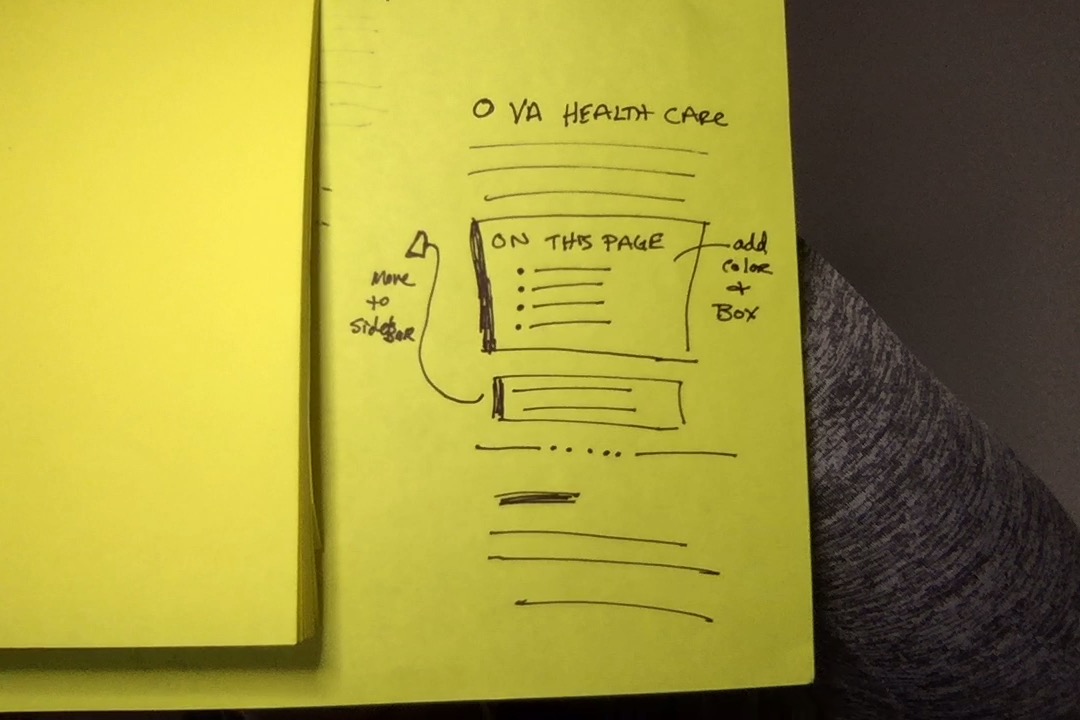 O VA HEALTH CARE
ON THIS PAGE
add
color
+
Box
Move
to
sidebar